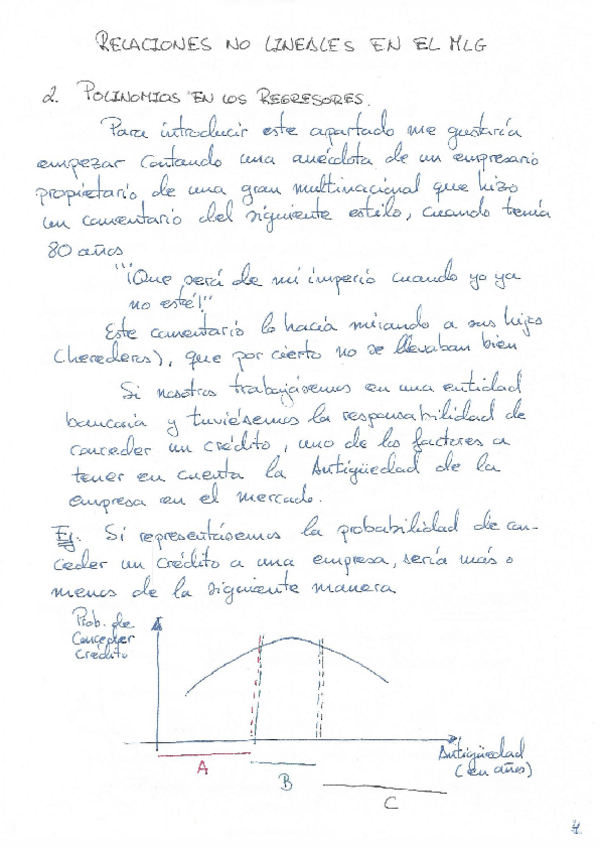 RELACIONES NO LINEALES EN EL MLG
2. POLINOMIOS EN LOS REGRESORES.
Para introducir este apartado me gustaría
empezar contando una anécdota de un empresario
propietario de una gran multinacional que hizo
un comentario del siguiente estilo, cuando tenía
80 años
"¡Que será de mi imperio cuando yo ya
no esté!"
Este comentario lo hacía mirando a sus hijos
(herederos), que por cierto no se llevaban bien
Si nosotros trabajásemos en una entidad
bancaria y tuviésemos la responsabilidad de
conceder un crédito, uno de los factores a
tener en cuenta la Antigüedad de la
empresa en el mercado.
Ej. Si representásemos la probabilidad de con-
ceder un crédito a una empresa, sería más o
menos de la siguiente manera
Prob. de
Conceder
Crédito
Antigüedad
(en años)
A
B
C
4